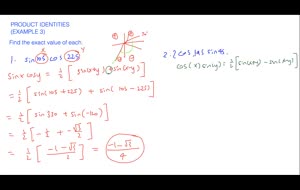 PRODUCT IDENTITIES
(EXAMPLE 3)
Find the exact value of each.
1. sin 105 cos 225
sin x cos y = 1/2 [sin(x+y) + sin(x-y)]
= 1/2 [sin(105+225) + sin(105-225)]
= 1/2 [sin 330 + sin(-120)]
= 1/2 [-1/2 + -√3/2]
= 1/2 [(-1-√3)/2] = (-1-√3)/4
cos(x) sin(y) = 1/2 [sin(x+y) - sin(x-y)]